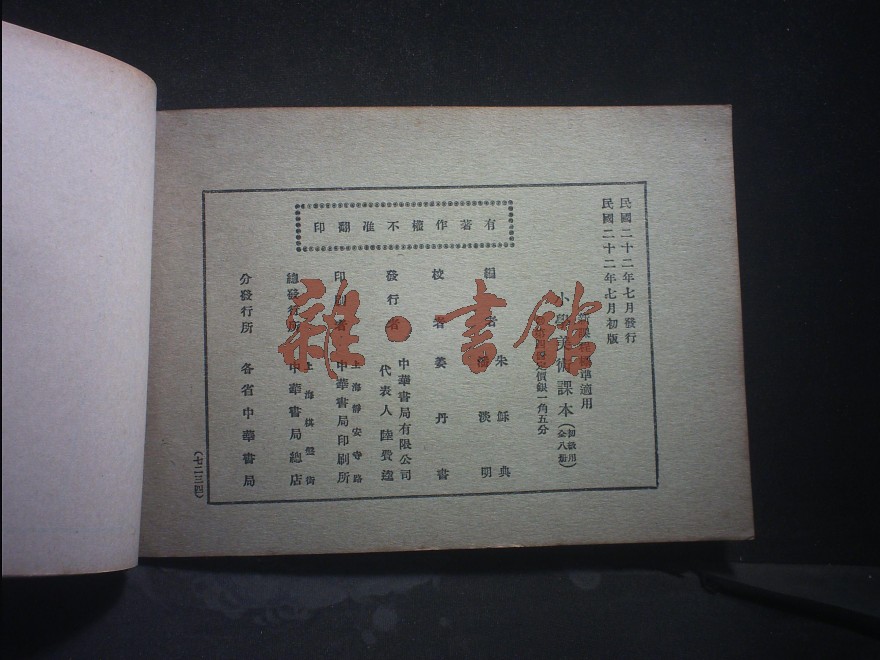 民國二十二年七月發行
民國二十二年七月初版
新課程標準適用
小學美術課本(初級用全八冊)
定價銀一角五分
有著作權不准翻印
編者 朱穌典
潘淡明
校者 姜丹書
發行者 中華書局有限公司
代表人陸費逵
印刷者 上海靜安寺路
中華書局印刷所
總發行所 上海棋盤街
中華書局總店
分發行所 各省中華書局
(七二三四)
雜·書館